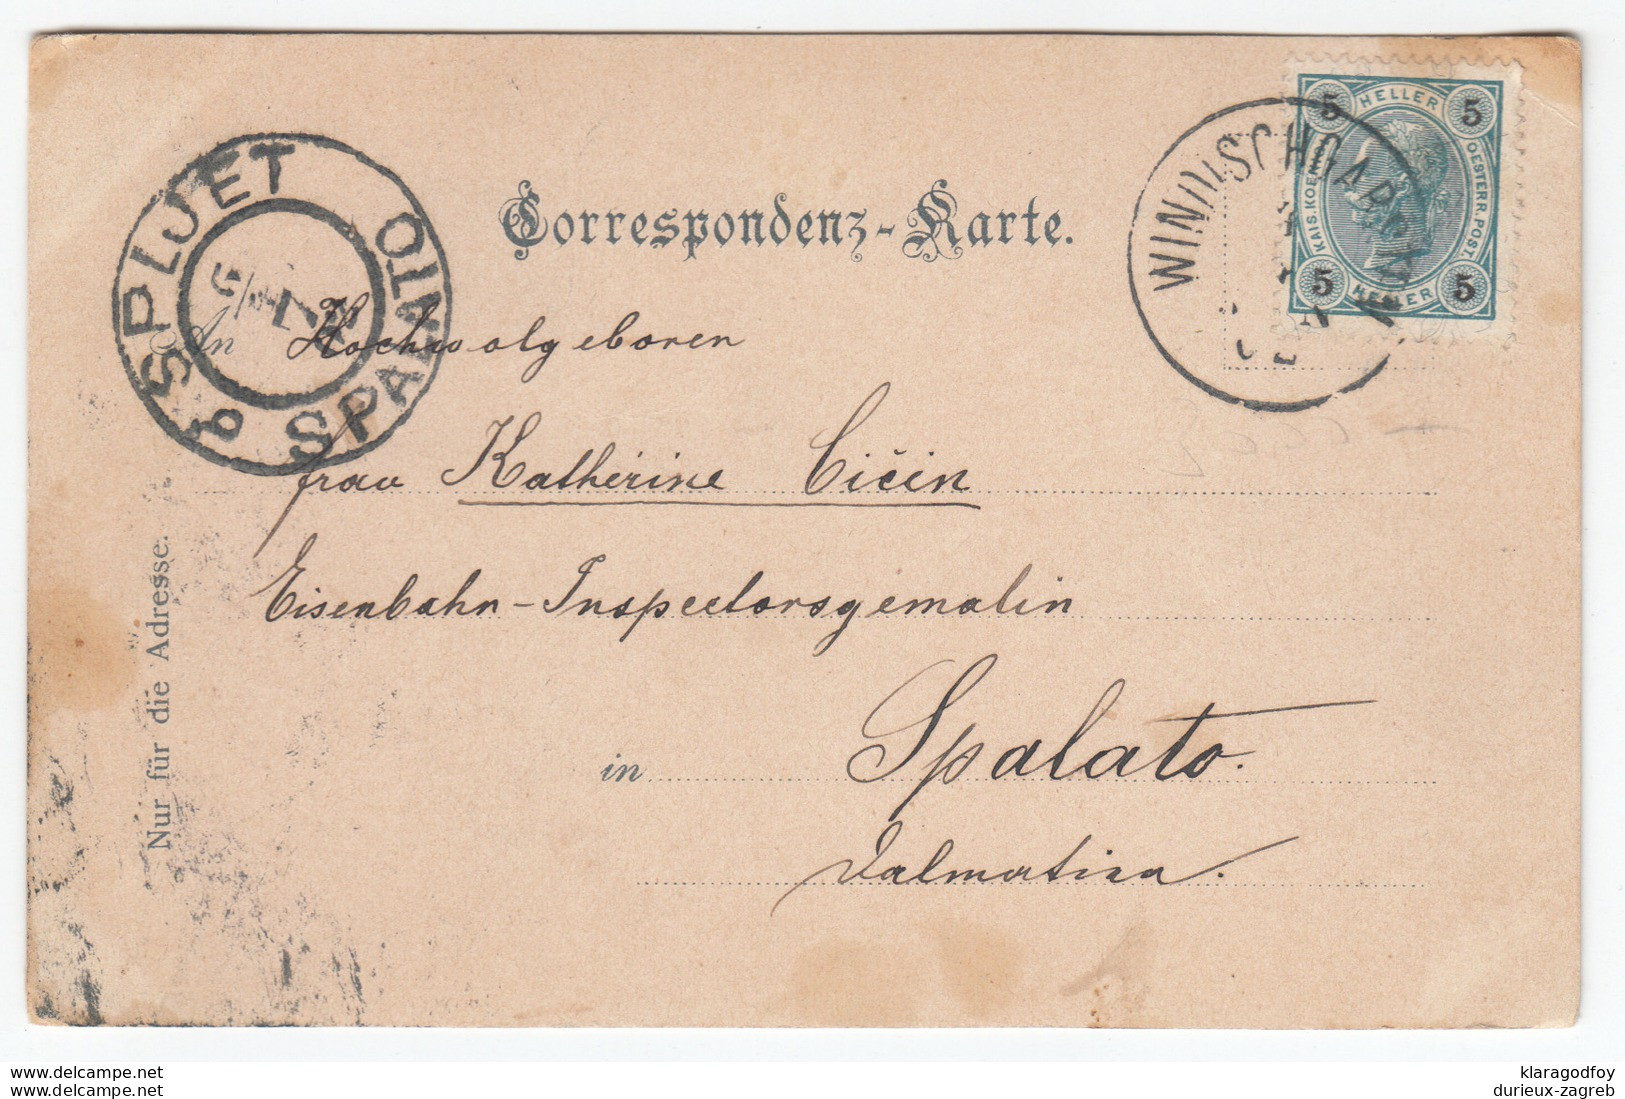 Correspondenz-Karte.
WINDISCHGARSTEN
5 HELLER 5
KAIS.KOENIGL.
OESTERR.POST.
5 HELLER 5
SPLJET
SPALATO
An Hochwolgeboren
frau Katherine Cičin
Eisenbahn-Inspectorsgemalin
in Spalato.
Dalmatien.
Nur für die Adresse.
www.delcampe.net
klaragodfoy
www.delcampe.net
durieux-zagreb